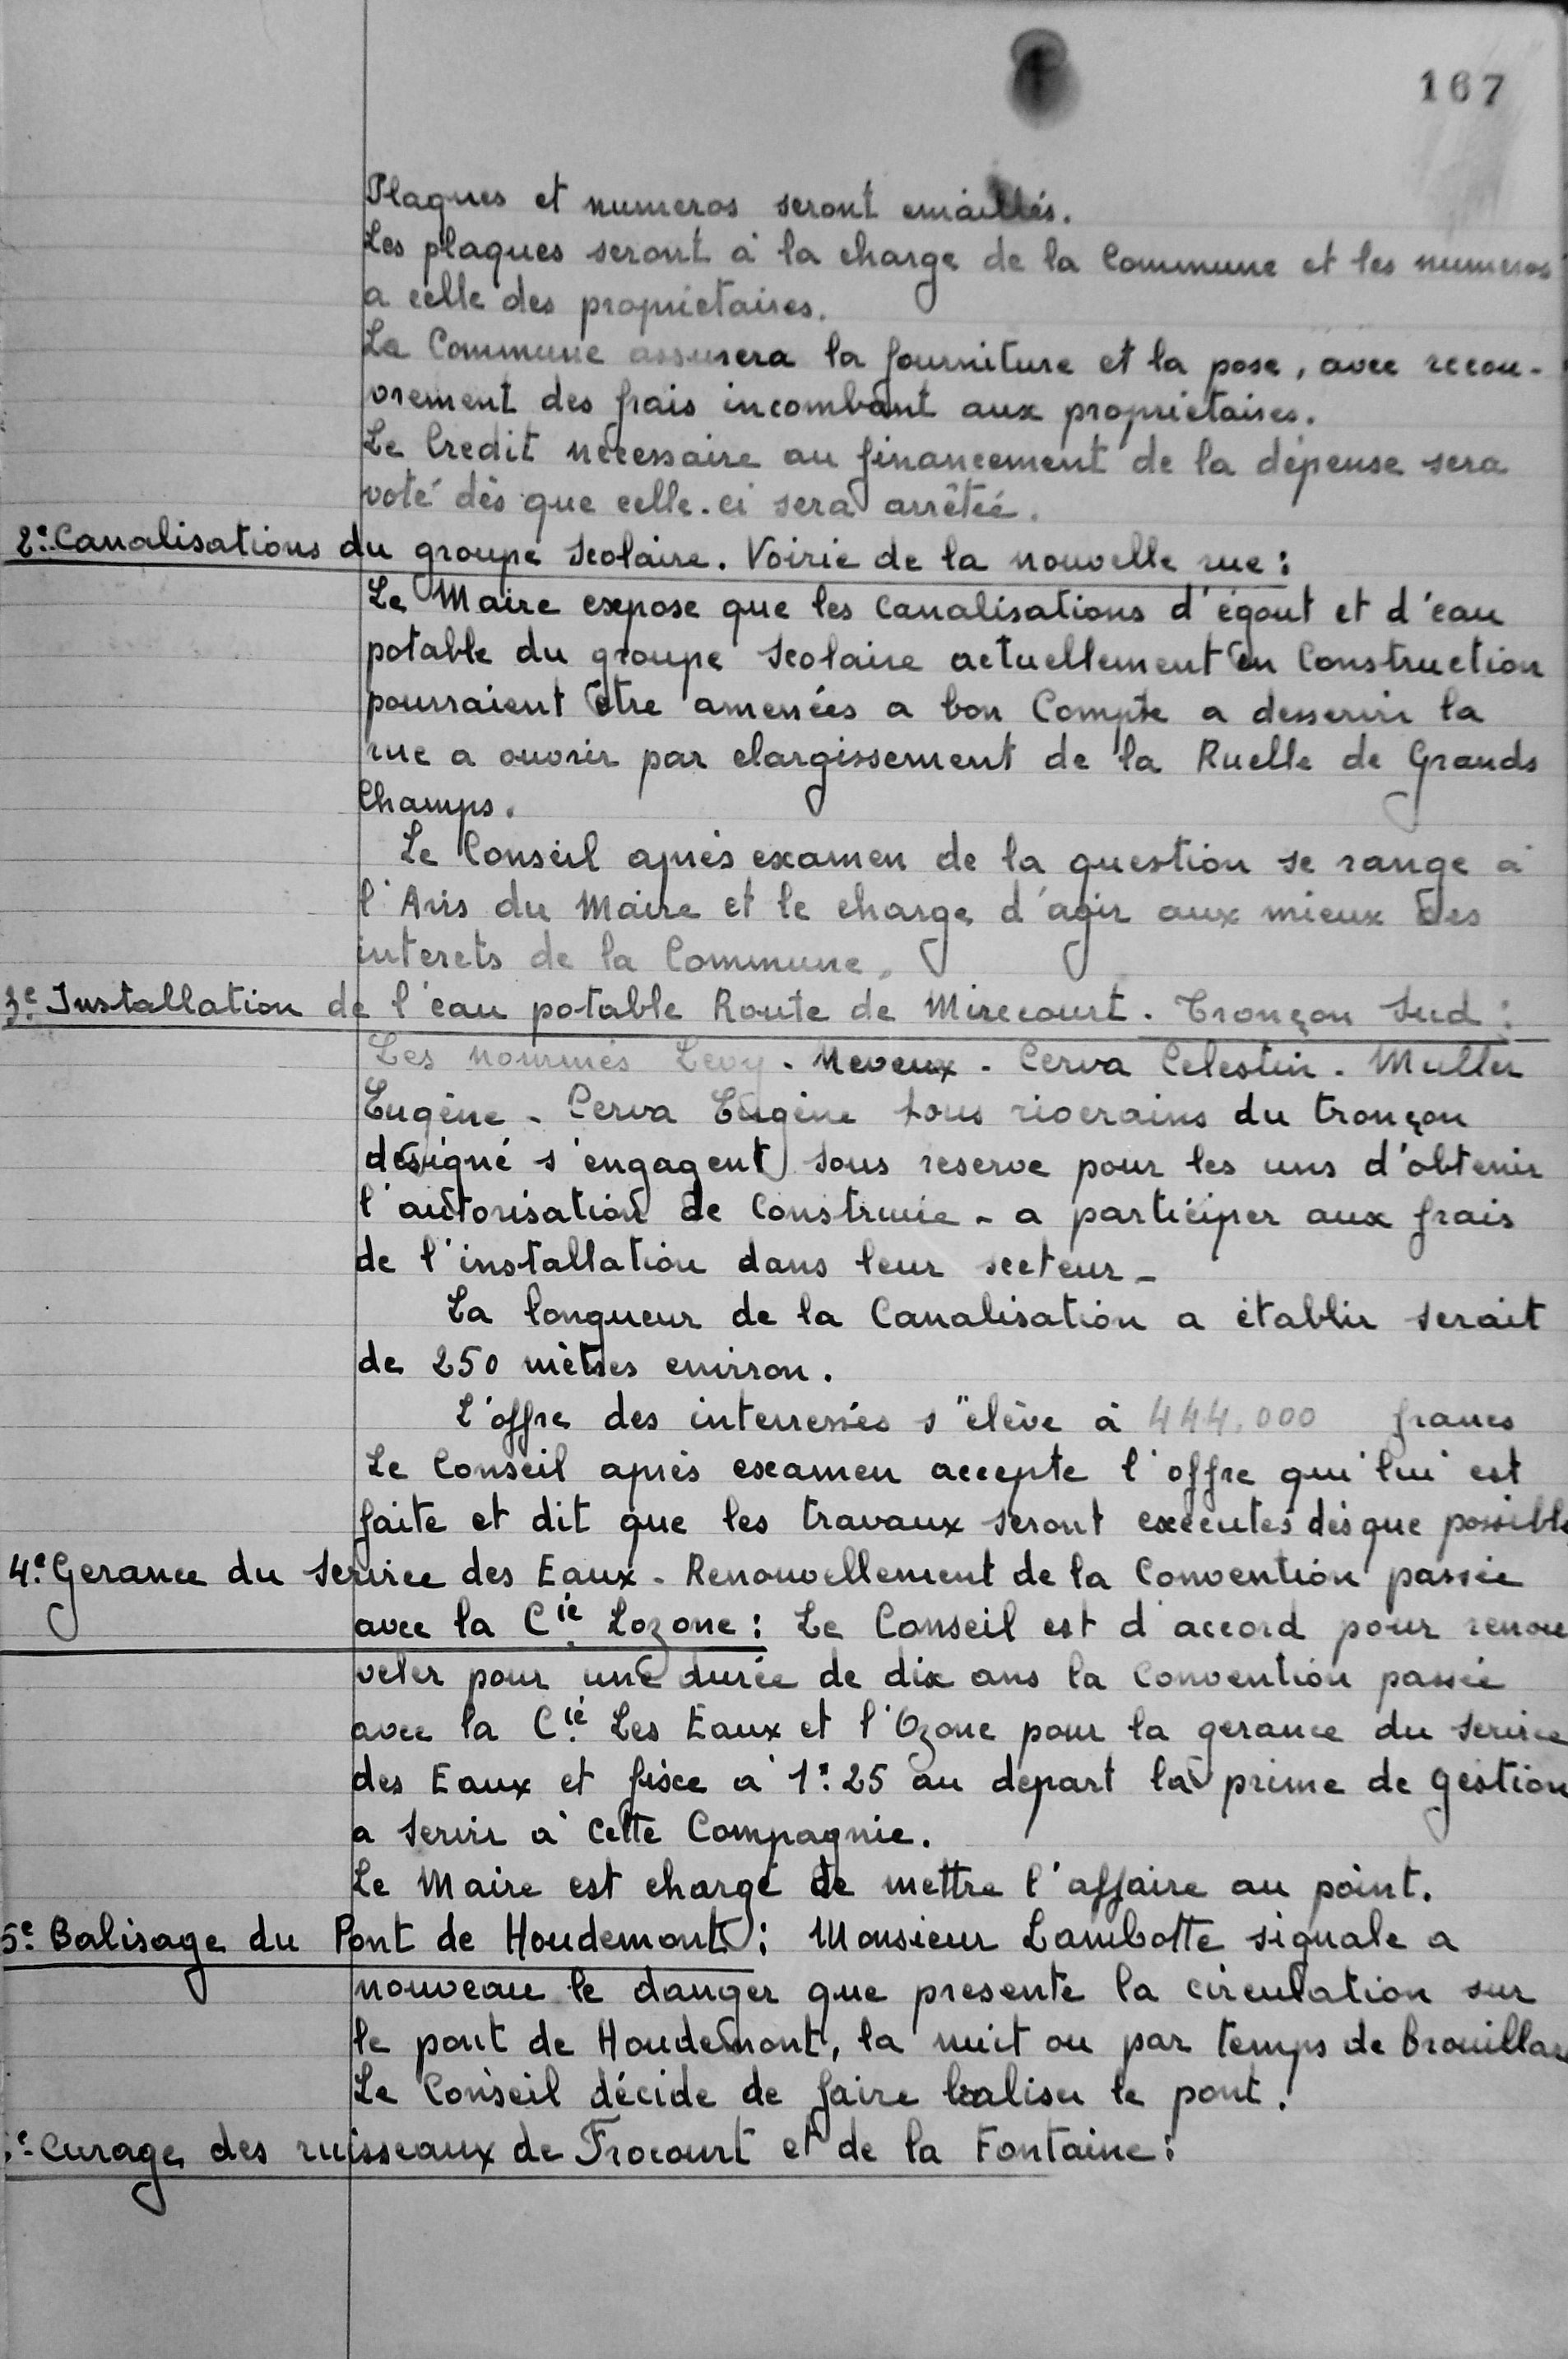 167
Plaques et numeros seront emaillés.
Les plaques seront à la charge de la Commune et les numeros
a celle des proprietaires.
La Commune assurera la fourniture et la pose, avec recou-
vrement des frais incombant aux proprietaires.
Le Credit necessaire au financement de la dépense sera
voté dès que celle-ci sera arrêtée.
2e. Canalisations du groupe Scolaire. Voirie de la nouvelle rue :
Le Maire expose que les Canalisations d'égout et d'eau
potable du groupe Scolaire actuellement en Construction
pourraient être amenées a bon Compte a desservir la
rue a ouvrir par elargissement de la Ruelle de Grands
Champs.
Le Conseil après examen de la question se range à
l'Avis du Maire et le charge d'agir aux mieux des
interets de la Commune.
3e. Installation de l'eau potable Route de Mirecourt. Tronçon Sud :
Les nommés Levy - Neveux - Cerva Celestin - Muller
Eugène - Cerva Eugène tous riverains du tronçon
désigné s'engagent sous reserve pour les uns d'obtenir
l'autorisation de Construire - a participer aux frais
de l'installation dans leur secteur -
La longueur de la Canalisation a établir serait
de 250 mètres environ.
L'offre des interressés s'elève à 444.000 francs
Le Conseil après examen accepte l'offre qui lui est
faite et dit que les travaux seront executés dès que possible
4e. Gerance du Service des Eaux - Renouvellement de la Convention passée
avec la Cie Lozone : Le Conseil est d'accord pour renou
veler pour une durée de dix ans la Convention passée
avec la Cie Les Eaux et l'Ozone pour la gerance du Service
des Eaux et fixe à 1.25 au depart la prime de gestion
a servir à Cette Compagnie.
Le Maire est chargé de mettre l'affaire au point.
5e. Balisage du Pont de Houdemont : Monsieur Lambotte signale a
nouveau le danger que presente la circulation sur
le pont de Houdemont, la nuit ou par temps de brouillar
Le Conseil décide de faire baliser le pont.
e- Curage des ruisseaux de Frocourt et de la Fontaine :